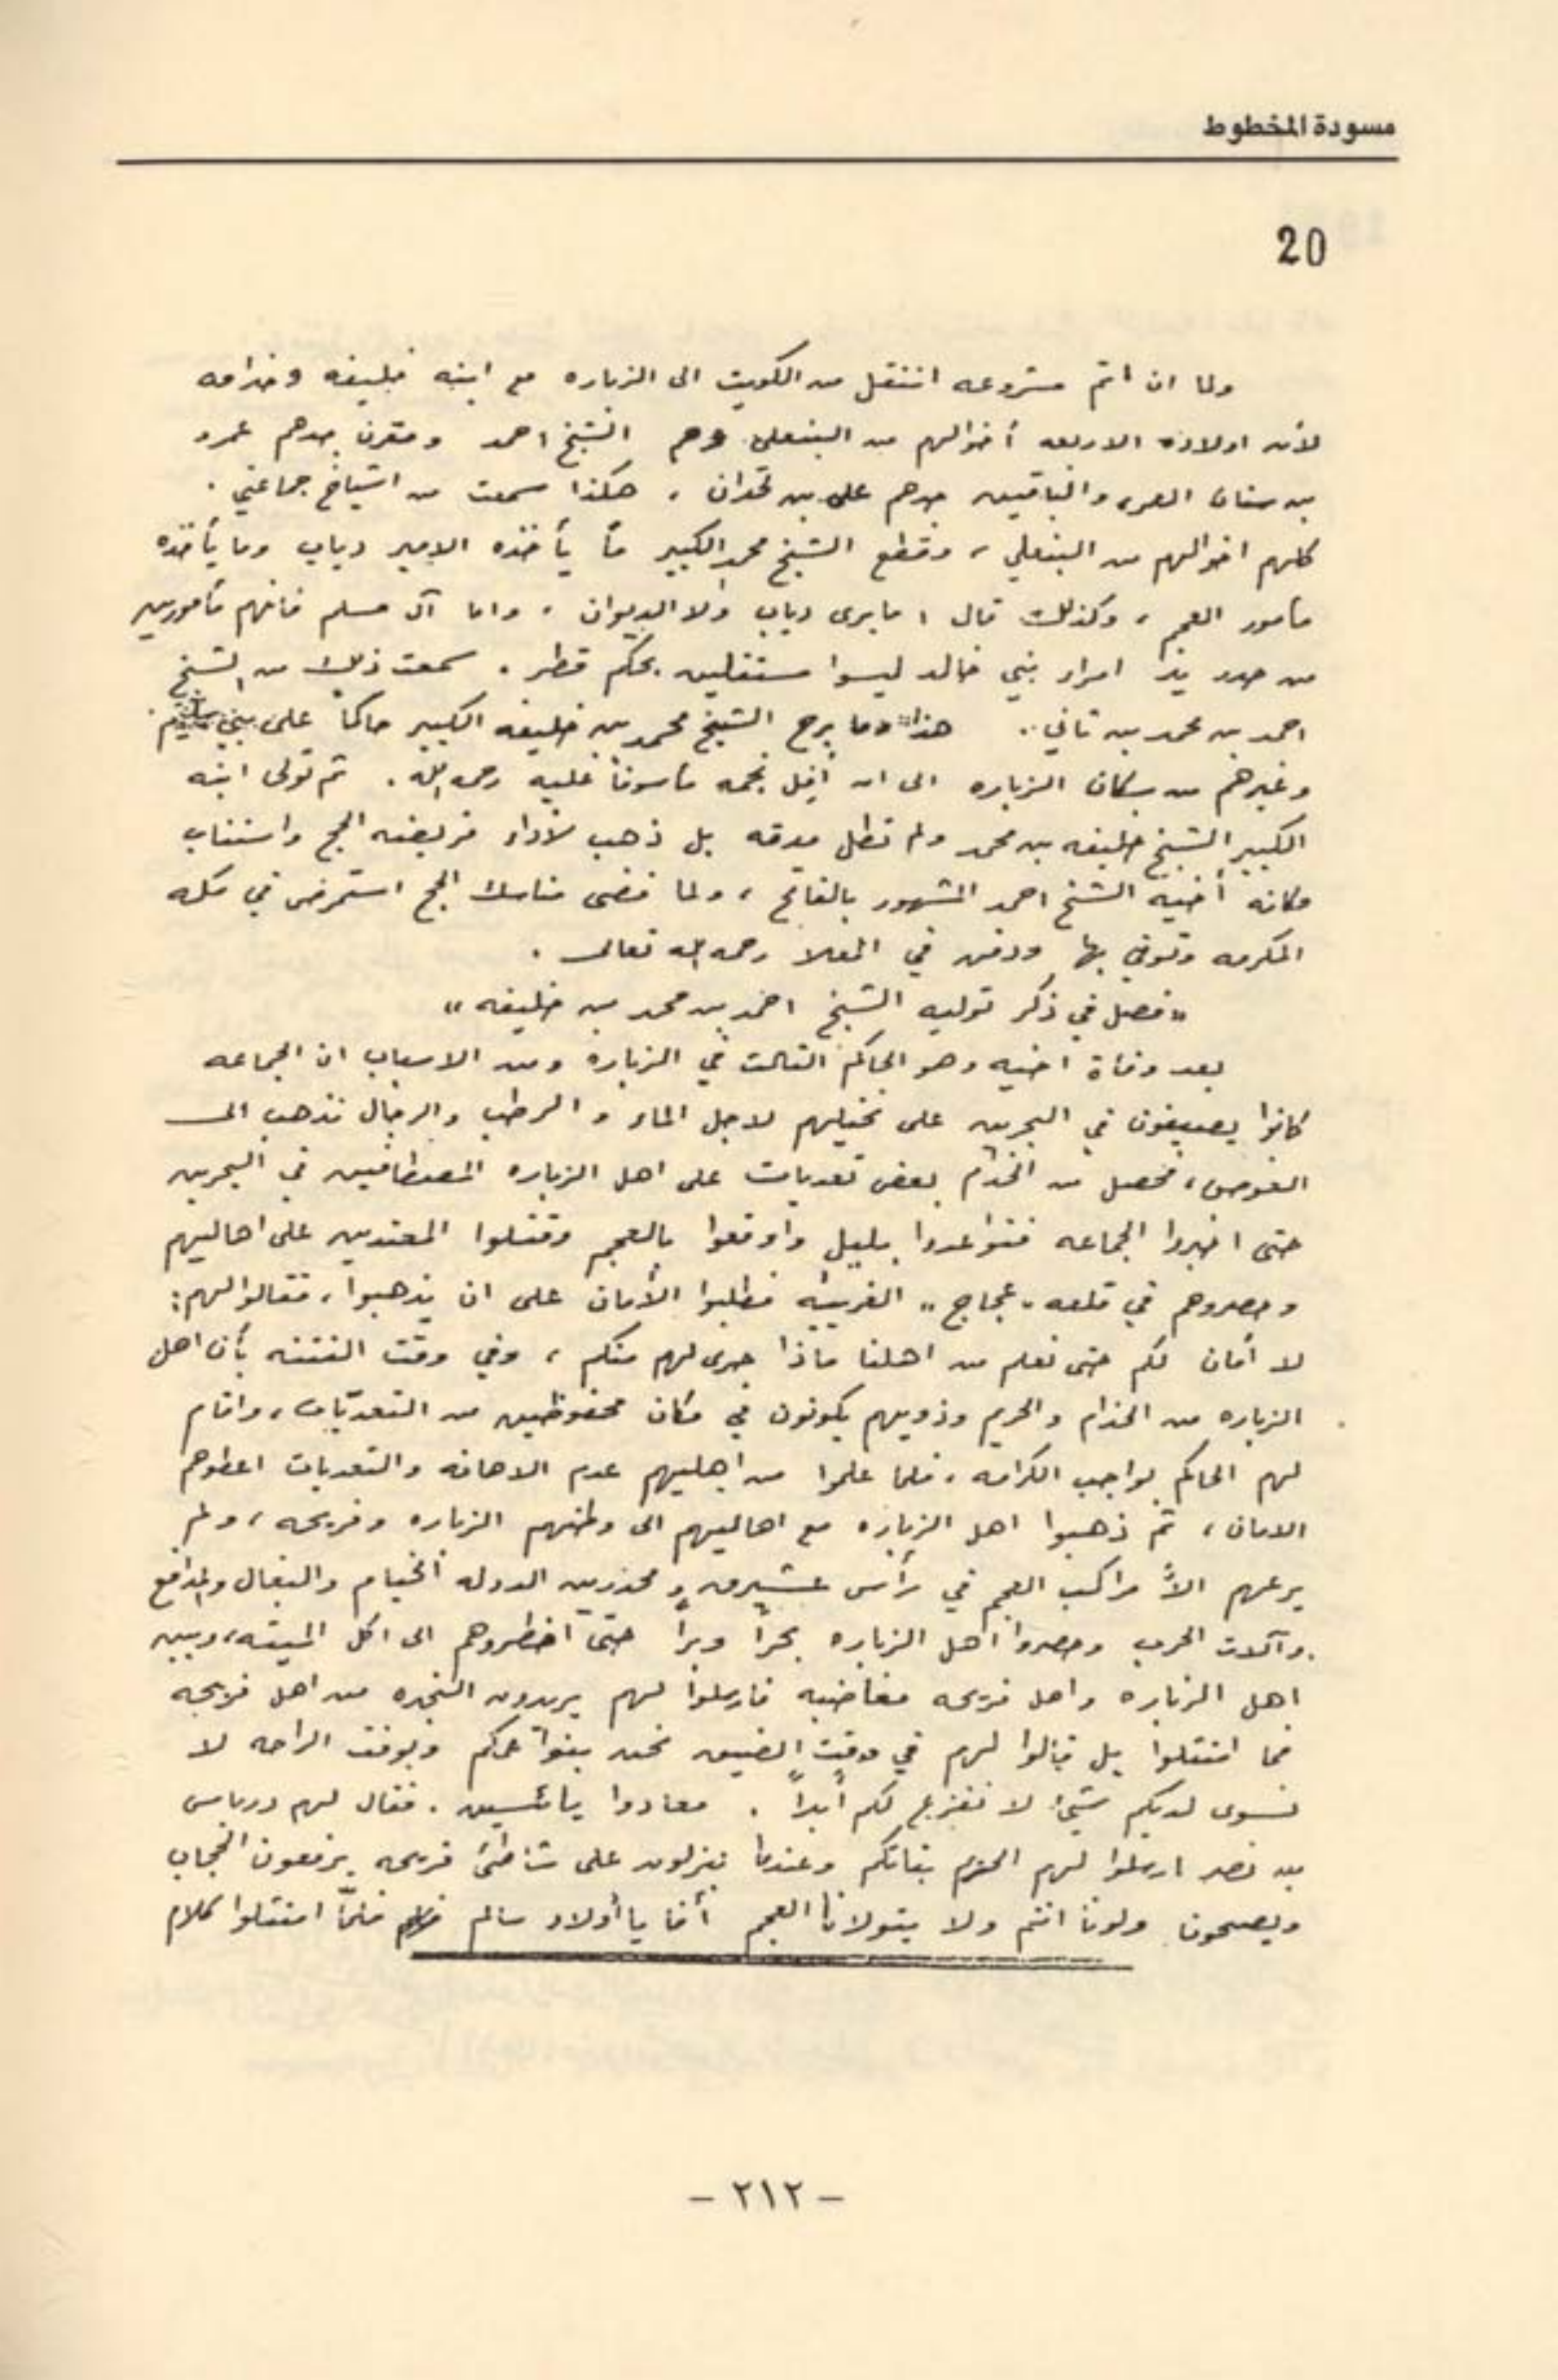 مسودة المخطوط
20
ولما ان اتم مشروعه انتقل من الكويت الى الزباره مع ابنه خليفه وخدامه
لأن اولاده الاربعه أخوالهم من البنعلي وهم الشيخ احمد ومقرن جدهم عمرو
بن سنان المر، والباقين جدهم علي بن قحدان، هكذا سمعت من اشياخ جماعتي.
كلهم اخوالهم من البنعلي، وقطع الشيخ محمد الكبير ما يأخذه الامير دياب وما يأخذه
مأمور العجم، وكذلك قال، مايرى دياب ولا الديوان، واما آل مسلم فانهم مأمورين
من صدد يد امراء بني خالد ليسوا مستقلين بحكم قطر. سمعت ذلك من الشيخ
احمد بن محمد بن ثاني.. هذا وما برح الشيخ محمد بن خليفه الكبير حاكماً على بني سليم.
وغيرهم من سكان الزباره الى ان أفل نجمه مأسوفاً عليه رحمه الله. ثم تولى ابنه
الكبير الشيخ خليفه بن محمد ولم تطل مدته بل ذهب لأداء فريضه الحج واستناب
مكانه أخيه الشيخ احمد المشهور بالفاتح، ولما قضى مناسك الحج استمرض في مكه
المكرمه وتوفي بها ودفن في المعلا رحمه الله تعالى.
«فصل في ذكر توليه الشيخ احمد بن محمد بن خليفه»
بعد وفاة اخيه وهو الحاكم الثالث في الزباره ومن الاسباب ان الجماعه
كانوا يصيفون في البحرين على نخيلهم لاجل الماء والرطب والرجال تذهب الى
الغوص، فحصل من الخدام بعض تعديات على اهل الزباره المصطافين في البحرين
حتى اخبروا الجماعه فتواعدوا بليل واوقعوا بالعجم وقتلوا المعتدين على اهاليهم
وحصروهم في قلعه «عجاج» الغربيه فطلبوا الأمان على ان يذهبوا، فقالوا لهم:
لا أمان لكم حتى نعلم من اهلنا ماذا جرى لهم منكم، وفي وقت الفتنه بأن اهل
الزباره من الخدام والحريم وذويهم يكونون في مكان محفوظين من التعديّات، واقام
لهم الحاكم بواجب الكرامه، فلما علموا من اهليهم عدم الاهانه والتعديات اعطوهم
الامان، ثم ذهبوا اهل الزباره مع اهاليهم الى وطنهم الزباره وفريحه، ولم
يرعهم الاّ مراكب العجم في رأس عشيرق ومحدرين الدوله الخيام والبغال والمدافع
وآلات الحرب وحصروا اهل الزباره بحراً وبراً حتى اضطروهم الى اكل الميته، وبين
اهل الزباره واهل فريحه مغاضبه فارسلوا لهم يريدون النجده من اهل فريحه
فما امتثلوا بل قالوا لهم في وقت الضيق نحن بنو عمكم وبوقت الراحه لا
نسوى لديكم شيئ لا نفزع لكم أبداً. فعادوا يائسين. فقال لهم درباس
بن نصر ارسلوا لهم الحرم بناتكم وعندما ينزلون على شاطئ فريحه يرفعون الحجاب
ويصيحون ولونا انتم ولا يتولانا العجم أفا يا أولاد سالم فلمّا امتثلوا كلام
- ٢١٢ -